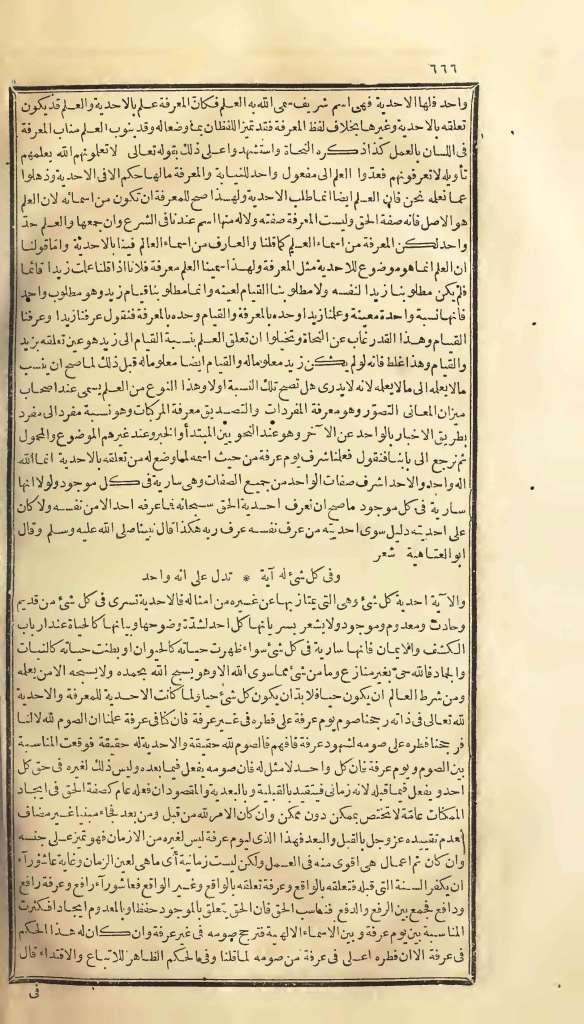 ٦٦٦
واحد فلها الاحدية فهى اسم شريف سمى الله به العلم فكان المعرفة علم بالاحدية والعلم قد يكون
تعلقه بالاحدية وغيرها بخلاف لفظ المعرفة فقد تميز اللفظان بما وضعا له وقد ينوب العلم مناب المعرفة
فى اللسان بالعمل كذا ذكره النحاة واستشهدوا على ذلك بقوله تعالى لا تعلمونهم الله يعلمهم
تأويله لا تعرفونهم فعدّوا العلم الى مفعول واحد للنيابة والمعرفة مالها حكم الا فى الاحدية وذهلوا
عما نعلمه نحن فان العلم ايضا انما طلب الاحدية ولهذا صح للمعرفة ان تكون من اسمائه لان العلم
هو الاصل فانه صفة الحق وليست المعرفة صفته ولا له منها اسم عندنا فى الشرع وان جمعها والعلم حدّ
واحد لكن المعرفة من اسماء العلم كما قلنا والعارف من اسماء العالم فينا بالاحدية وانما قولنا
ان العلم انما هو موضوع للاحدية مثل المعرفة ولهذا سمينا العلم معرفة فلانا اذا قلنا علمت زيدا قائما
فلم يكن مطلوبنا زيدا لنفسه ولا مطلوبنا القيام لعينه وانما مطلوبنا قيام زيد وهو مطلوب واحد
فانها نسبة واحدة معينة وعلمنا زيدا وحده بالمعرفة والقيام وحده بالمعرفة فنقول عرفنا زيدا وعرفنا
القيام وهذا القدر غاب عن النحاة وتخيلوا ان تعلق العلم بنسبة القيام الى زيد هو عين تعلقه بزيد
والقيام وهذا غلط فانه لو لم يكن زيد معلوما له والقيام ايضا معلوما له قبل ذلك لما صح ان ينسب
ما لا يعلمه الى ما لا يعلمه لانه لا يدرى هل تصح تلك النسبة اولا وهذا النوع من العلم يسمى عند اصحاب
ميزان المعانى التصوّر وهو معرفة المفردات والتصديق معرفة المركبات وهو نسبة مفرد الى مفرد
بطريق الاخبار بالواحد عن الآخر وهو عند النحويين المبتدأ والخبر وعند غيرهم الموضوع والمحمول
ثم نرجع الى بابنا فنقول فعلمنا شرف يوم عرفة من حيث اسمه لما وضع له من تعلقه بالاحدية انما الله
اله واحد والاحد اشرف صفات الواحد من جميع الصفات وهى سارية فى كل موجود ولولا انها
سارية فى كل موجود ما صح ان نعرف احدية الحق سبحانه فما عرفه احد الا من نفسه ولا كان
على احديته دليل سوى احديته من عرف نفسه عرف ربه هكذا قال نبينا صلى الله عليه وسلم وقال
ابو العتاهية شعر
وفى كل شئ له آية * تدل على انه واحد
والآية احدية كل شئ وهى التى يمتاز بها عن غيره من امثاله فالاحدية تسرى فى كل شئ من قديم
وحادث ومعدوم وموجود ولا يشعر بسريانها كل احد لشدّة وضوحها وبيانها كالحياة عند ارباب
الكشف والايمان فانها سارية فى كل شئ سواء ظهرت حياته كالحيوان او بطنت حياته كالنبات
والجماد فالله حىّ بغير منازع وما من شئ مما سوى الله الا وهو يسبح الله بحمده ولا يسبحه الا من يعلمه
ومن شرط العالم ان يكون حيا فلا بدّ ان يكون كل شئ حيا ولما كانت الاحدية للمعرفة والاحدية
لله تعالى فى ذاته رجحنا صوم يوم عرفة على فطره فى غير عرفة فان كنا فى عرفة علمنا ان الصوم لله لا لنا
فرجحنا فطره على صومه لشهود عرفة فافهم فالصوم لله حقيقة والاحدية له حقيقة فوقعت المناسبة
بين الصوم ويوم عرفة فان كل واحد لا مثل له فان صومه يفعل فيما بعده وليس ذلك لغيره فى حق كل
احد ويفعل فيما قبله لانه زمانى فيتقيد بالقبلية وبالبعدية والمقصود ان فعله عام كصفة الحق فى ايجاد
الممكنات عامّة لا تختص بممكن دون ممكن وان كان الامر لله من قبل ومن بعد فجاء مبنيا غير مضاف
لعدم تقييده عز وجل بالقبل والبعد فهذا الذى ليوم عرفة ليس لغيره من الازمان فهو تميز على جنسه
وان كان ثم اعمال هى اقوى منه فى العمل ولكن ليست زمانية أى ما هى لعين الزمان وغاية عاشوراء
ان يكفر السنة التى قبله فتعلقه بالواقع وعرفة تعلقه بالواقع وغير الواقع فعاشوراء رافع وعرفة رافع
ودافع فجمع بين الرفع والدفع فناسب الحق فان الحق يتعلق بالموجود حفظا وبالمعدوم ايجادا فكثرت
المناسبة بين يوم عرفة وبين الاسماء الالهية فترجح صومه فى غير عرفة وان كان له هذا الحكم
فى عرفة الا ان فطره اعلى فى عرفة من صومه لما قلنا وفى الحكم الظاهر للاتباع والاقتداء قال
فى